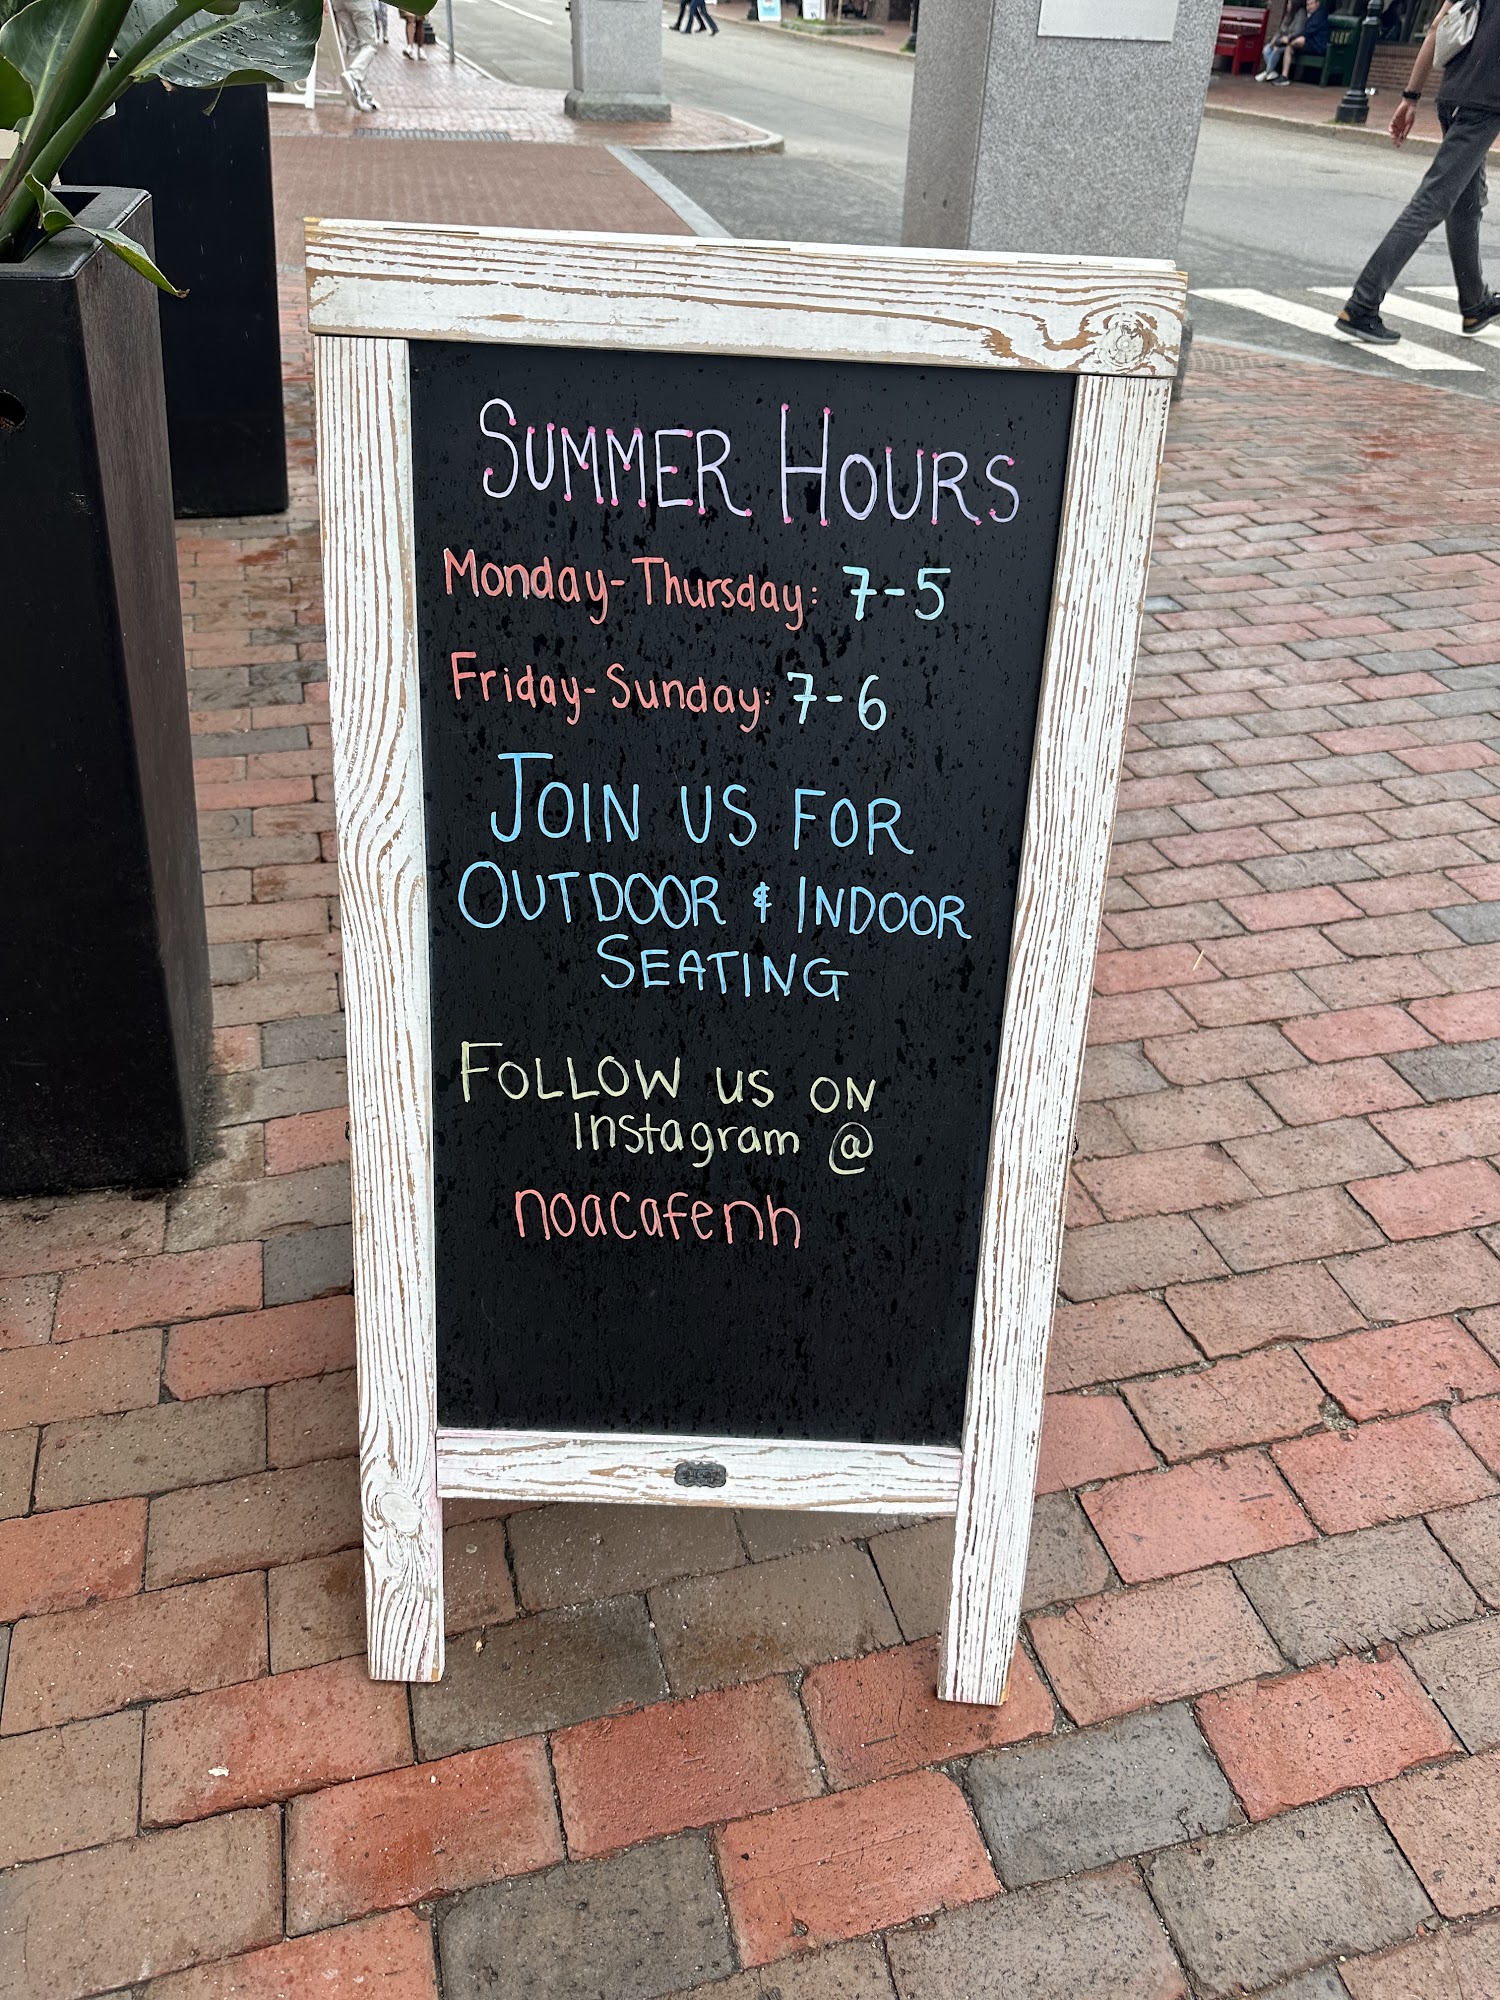 SUMMER HOURS
Monday-Thursday: 7-5
Friday-Sunday: 7-6
JOIN US FOR
OUTDOOR & INDOOR
SEATING
FOLLOW US ON
Instagram @
noacafenh